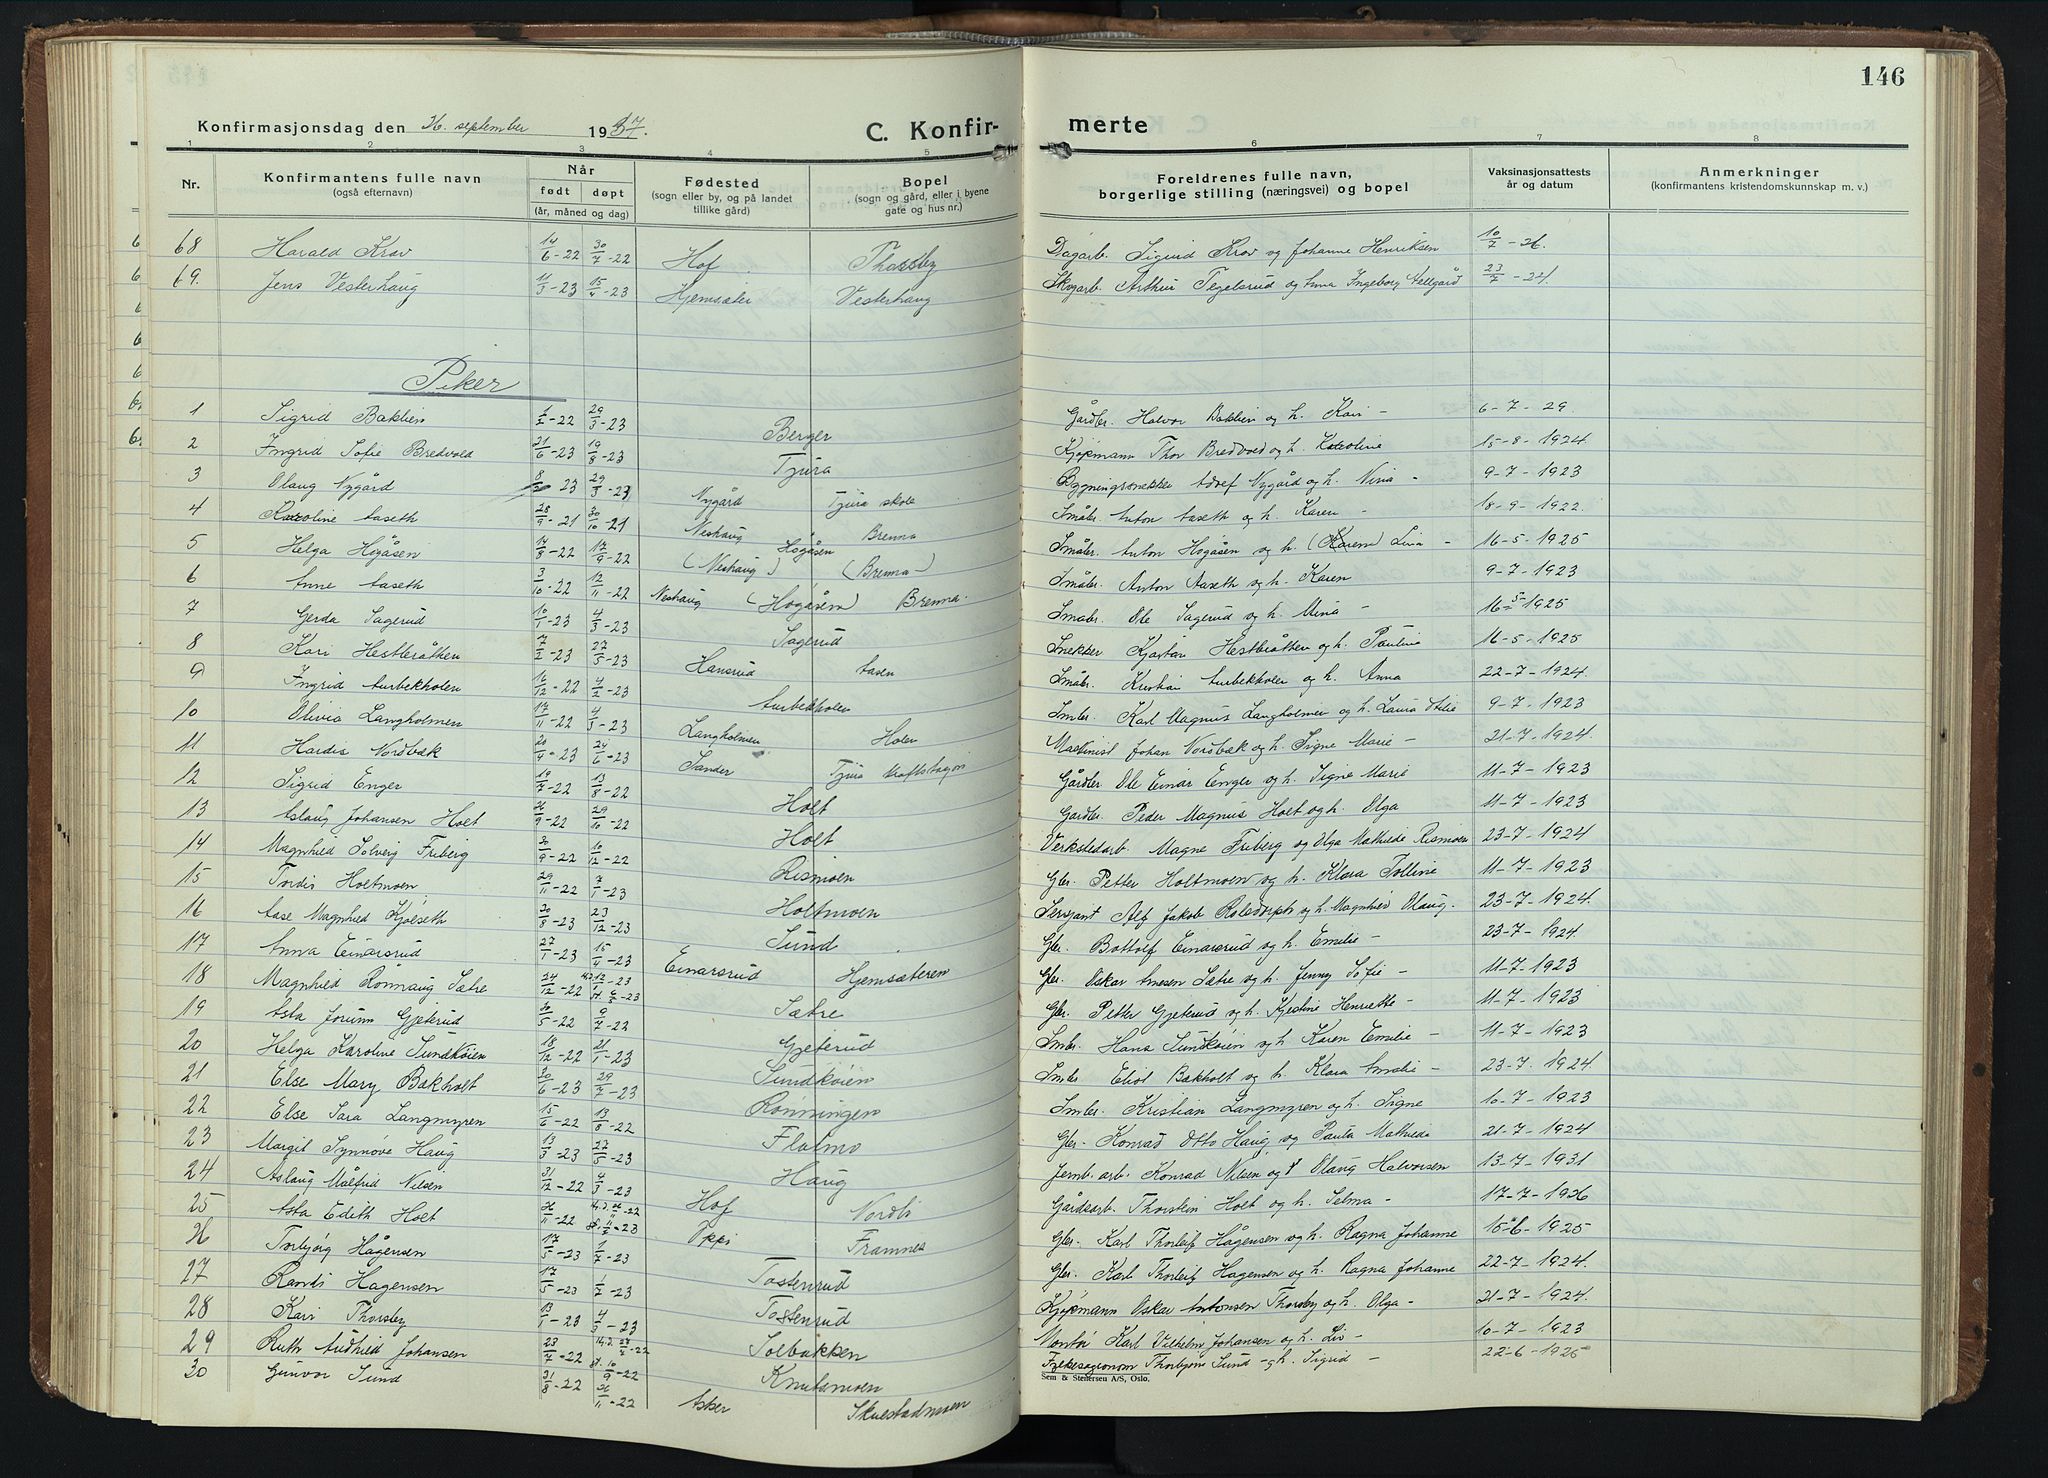 146
Konfirmasjonsdag den 26. september 1937.
C. Konfirmerte
1 2 3 4 5 6 7 8
Nr.
Konfirmantens fulle navn
(også efternavn)
Når
født døpt
(år, måned og dag)
Fødested
(sogn eller by, og på landet
tillike gård)
Bopel
(sogn og gård, eller i byene
gate og hus nr.)
Foreldrenes fulle navn,
borgerlige stilling (næringsvei) og bopel
Vaksinasjonsattests
år og datum
Anmerkninger
(konfirmantens kristendomskunnskap m. v.)
68 Harald Krav 14/6-22 30/7-22 Hof Thorsby Dagarb. Sigurd Krav og Johanne Henriksen 10/7-26.
69. Jens Vesterhaug 15/4-23 Hjemsæter Vesterhaug Skogarb. Arthur Tegelsrud og Anna Ingeborg 23/7-24.
Piker
1 Sigrid Baklien 29/3-23 Berger Gårdbr. Halvor Baklien og h. Kari - 6-7-29.
2 Ingrid Sofie Bredvold 21/6-23 19/8-23 Tjura Kjøpmann Thor Bredvold og h. Karoline 15-8-1924.
3 Olaug Nygård 23 29/3-23 Nygård Tjura skole Bygningssnekker Nygård og h. Nina - 9-7-1923
4 Karoline Aaseth 28/9-21 30/10-21 Neshaug Brenna Småbr. Anton Aaseth og h. Karen - 18-9-1922.
5 Helga Høgåsen 14/8-22 17/9-22 (Neshaug) Høgåsen (Brenna) Småbr. Anton Høgåsen og h. (Karen) Lina - 16-5-1925
6 Anne Aaseth 3/10-22 12/11-22 Neshaug (Høgåsen) Brenna. Småbr. Anton Aaseth og h. Karen 9-7-1923
7 Gerda Sagerud 10/1-23 4/3-23 Sagerud Småbr. Ole Sagerud og h. Mina - 16-5-1925
8 Kari Hestbråthen 7/2-23 27/5-23 Hansrud Aasen Snekker Kjøstan Hestbråthen og h. Pauline 16-5-1925
9 Ingrid Aurbekholen 16/12-22 4/2-23 Aurbekholen Småbr. Kristian Aurbekholen og h. Anna 22-7-1924
10 Olivia Langholmen 17/11-22 4/3-23 Langholmen Holen Smbr. Karl Magnus Langholmen og h. Laura Otilie 9-7-1923
11 Hardis Nordbæk 20/4-23 24/6-23 Sander Tjura kraftstasjon Maskinist Johan Nordbæk og h. Signe Marie - 21-7-1924
12 Sigrid Enger 19/7-22 13/8-22 Holt Gårdbr Ole Einar Enger og h. Signe Marie 11-7-1923
13 Aslaug Johansen Holt 21/9-22 29/10-22 Holt Gårdbr. Peder Magnus Holt og h. Olga 11-7-1923
14 Magnhild Solveig Friberg 30/9-22 10/12-22 Rismoen Verkstedarb. Magne Friberg og Olga Mathilde Rismoen 23-7-1924
15 Tordis Holtmoen 29/11-22 7/1-23 Holtmoen Gbr. Petter Holtmoen og h. Klara Tolline 11-7-1923
16 Aase Magnhild Kjølseth 30/8-23 23/12-23 Sund Sersjant Alf Jakob og h. Magnhild Olaug. 23-7-1924.
17 Anna Einarsrud 27/1-23 15/4-23 Einarsrud Hjemsæteren Gbr. Bottolf Einarsrud og h. Emilie - 23-7-1924.
18 Magnhild Rønnaug Sætre 24/12-22 Sætre Gbr. Oskar Amesen Sætre og h. Jenny Sofie - 11-7-1923
19 Asta Jorunn Gjeterud 30/5-22 9/7-22 Gjeterud Gbr. Petter Gjeterud og h. Kjestine Henriette - 11-7-1923
20 Helga Karoline Sundkøien 18/12-22 21/1-23 Sundkøien Smbr. Hans Sundkøien og h Karen Emilie - 11-7-1923
21 Else Mary Bækholt 30/6-23 29/7-23 Rønningen Smbr. Eliot Bækholt og h. Klara Amalie - 23-7-1924.
22 Else Sara Langmyren 15/6-22 13/8-22 Flatmo Smbr. Kristian Langmyren og h. Signe 10-7-1923
23 Margit Synnøve Haug 13/3-23 27/5-23 Haug Gbr. Konrad Otto Haug og Paula Mathilde 21-7-1924
24 Aslaug Målfrid Nilsen 31/12-22 4/3-23 Hof Nordli Jernb. arb. Konrad Nilsen og Olaug Halvorsen 13-7-1931
25 Asta Edith Holt 26/11-22 Oppi Framnes Gårdsarb. Thorstein Holt og h. Selma - 17-7-1926
26 Torbjørg Hågensen 17/5-23 1/7-23 Tostenrud Gbr. Karl Thorleif Hågensen og h. Ragna Johanne 15-6-1925
27 Randi Hagensen 17/5-23 1/7-23 Tostenrud Gbr. Karl Thorleif Hagensen og h. Ragna Johanne 22-7-1924.
28 Kari Thorsby 13/1-23 4/3-23 Solbakken Kjøpmann Oskar Antonsen Thorsby og h. Olga - 21-7-1924.
29 Ruth Audhild Johansen 23/7-22 Knutsmoen Montør Karl Vilhelm Johansen og h. Liv - 10-7-1923
30 Gunvor Sund 21/8-22 26/11-22 Asker Skulstadmoen Thorbjørn Sund - og h. Sigrid - 22-6-1925
Sem & Stenersen A/S, Oslo.